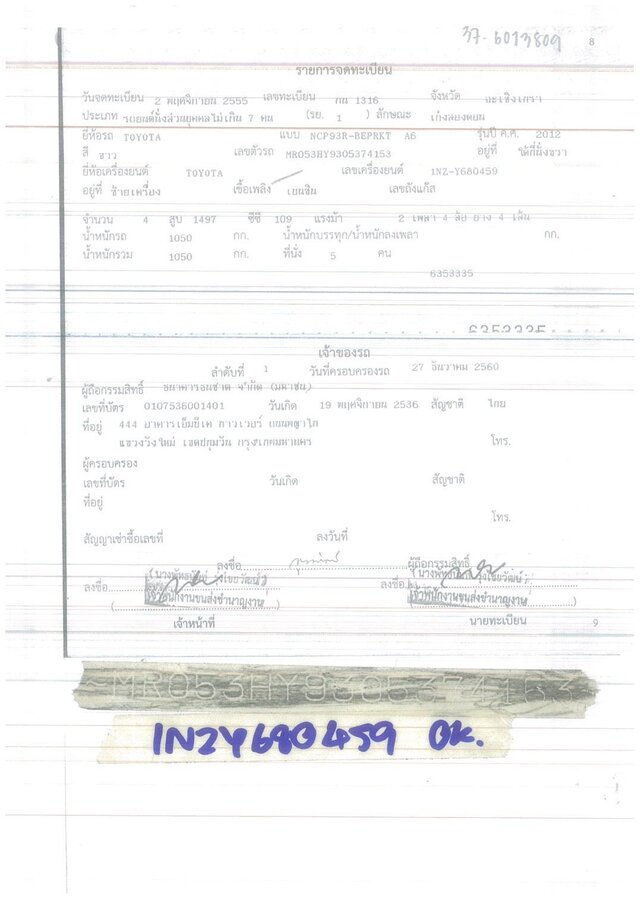 37-6013809
8
รายการจดทะเบียน
วันจดทะเบียน 2 พฤศจิกายน 2555 เลขทะเบียน กน 1316 จังหวัด ฉะเชิงเทรา
ประเภท รถยนต์นั่งส่วนบุคคลไม่เกิน 7 คน (รย. 1 ) ลักษณะ เก๋งสองตอน
ยี่ห้อรถ TOYOTA แบบ NCP93R-BEPRKT A6 รุ่นปี ค.ศ. 2012
สี ขาว เลขตัวรถ MR053HY9305374153 อยู่ที่ ใต้ที่นั่งขวา
ยี่ห้อเครื่องยนต์ TOYOTA เลขเครื่องยนต์ 1NZ-Y680459
อยู่ที่ ซ้ายเครื่อง เชื้อเพลิง เบนซิน เลขถังแก๊ส
จำนวน 4 สูบ 1497 ซีซี 109 แรงม้า 2 เพลา 4 ล้อ ยาง 4 เส้น
น้ำหนักรถ 1050 กก. น้ำหนักบรรทุก/น้ำหนักลงเพลา กก.
น้ำหนักรวม 1050 กก. ที่นั่ง 5 คน
6353335
6353335
เจ้าของรถ
ลำดับที่ 1 วันที่ครอบครองรถ 27 ธันวาคม 2560
ผู้ถือกรรมสิทธิ์ ธนาคารธนชาต จำกัด (มหาชน)
เลขที่บัตร 0107536001401 วันเกิด 19 พฤศจิกายน 2536 สัญชาติ ไทย
ที่อยู่ 444 อาคารเอ็มบีเค ทาวเวอร์ ถนนพญาไท
แขวงวังใหม่ เขตปทุมวัน กรุงเทพมหานคร โทร.
ผู้ครอบครอง
เลขที่บัตร วันเกิด สัญชาติ
ที่อยู่
โทร.
สัญญาเช่าซื้อเลขที่ ลงวันที่
ลงชื่อ ผู้ถือกรรมสิทธิ์
ลงชื่อ ลงชื่อ
เจ้าพนักงานขนส่งชำนาญงาน เจ้าพนักงานขนส่งชำนาญงาน
เจ้าหน้าที่ นายทะเบียน
9
MR053HY9305374153
1NZY680459 OK.